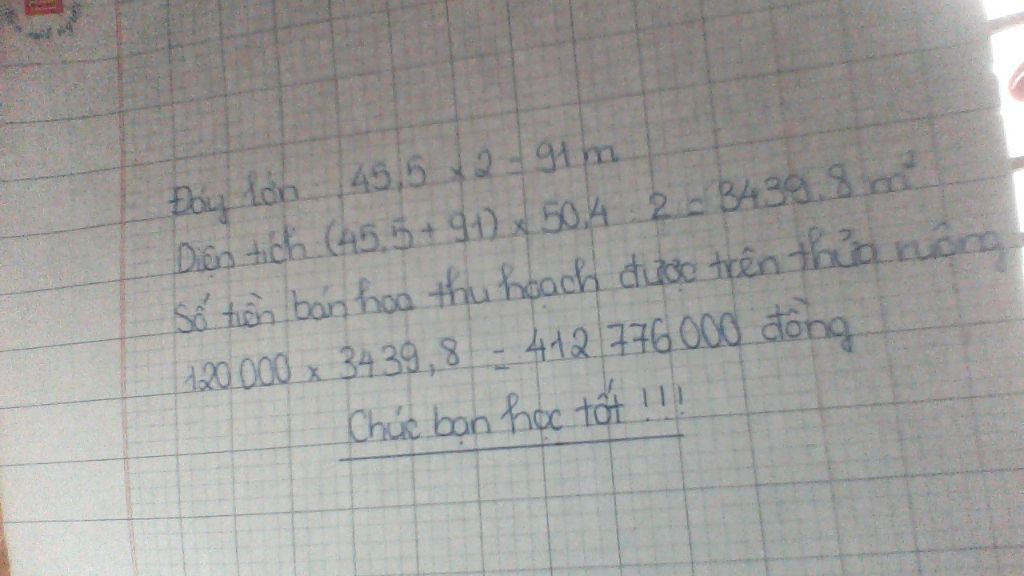 Đáy lớn: 45,5 x 2 = 91 m
Diện tích (45,5 + 91) x 50,4 : 2 = 3439,8 m²
Số tiền bán hoa thu hoạch được trên thửa ruộng
120 000 x 3439,8 = 412 776 000 đồng
Chúc bạn học tốt !!!